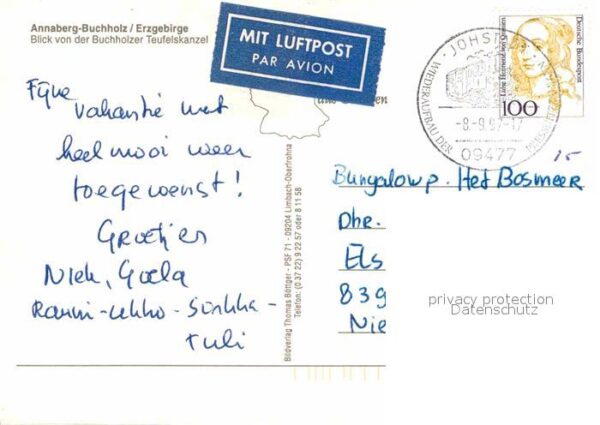 Annaberg-Buchholz / Erzgebirge
Blick von der Buchholzer Teufelskanzel
MIT LUFTPOST
PAR AVION
Deutsche Bundespost
100
WIEDERAUFBAU DER
-8.-9.97-17
09477
Fijne
vakantie met
heel mooi weer
toegewenst!
Groetjes
Niek, Goela
Bildverlag Thomas Böttger - PSF 71 - 09204 Limbach-Oberfrohna
Telefon: (0 37 22) 9 22 57 oder 8 11 58
15
Bungalowp. Het Bosmeer
Dhr.
Els
839
Nie
privacy protection
Datenschutz